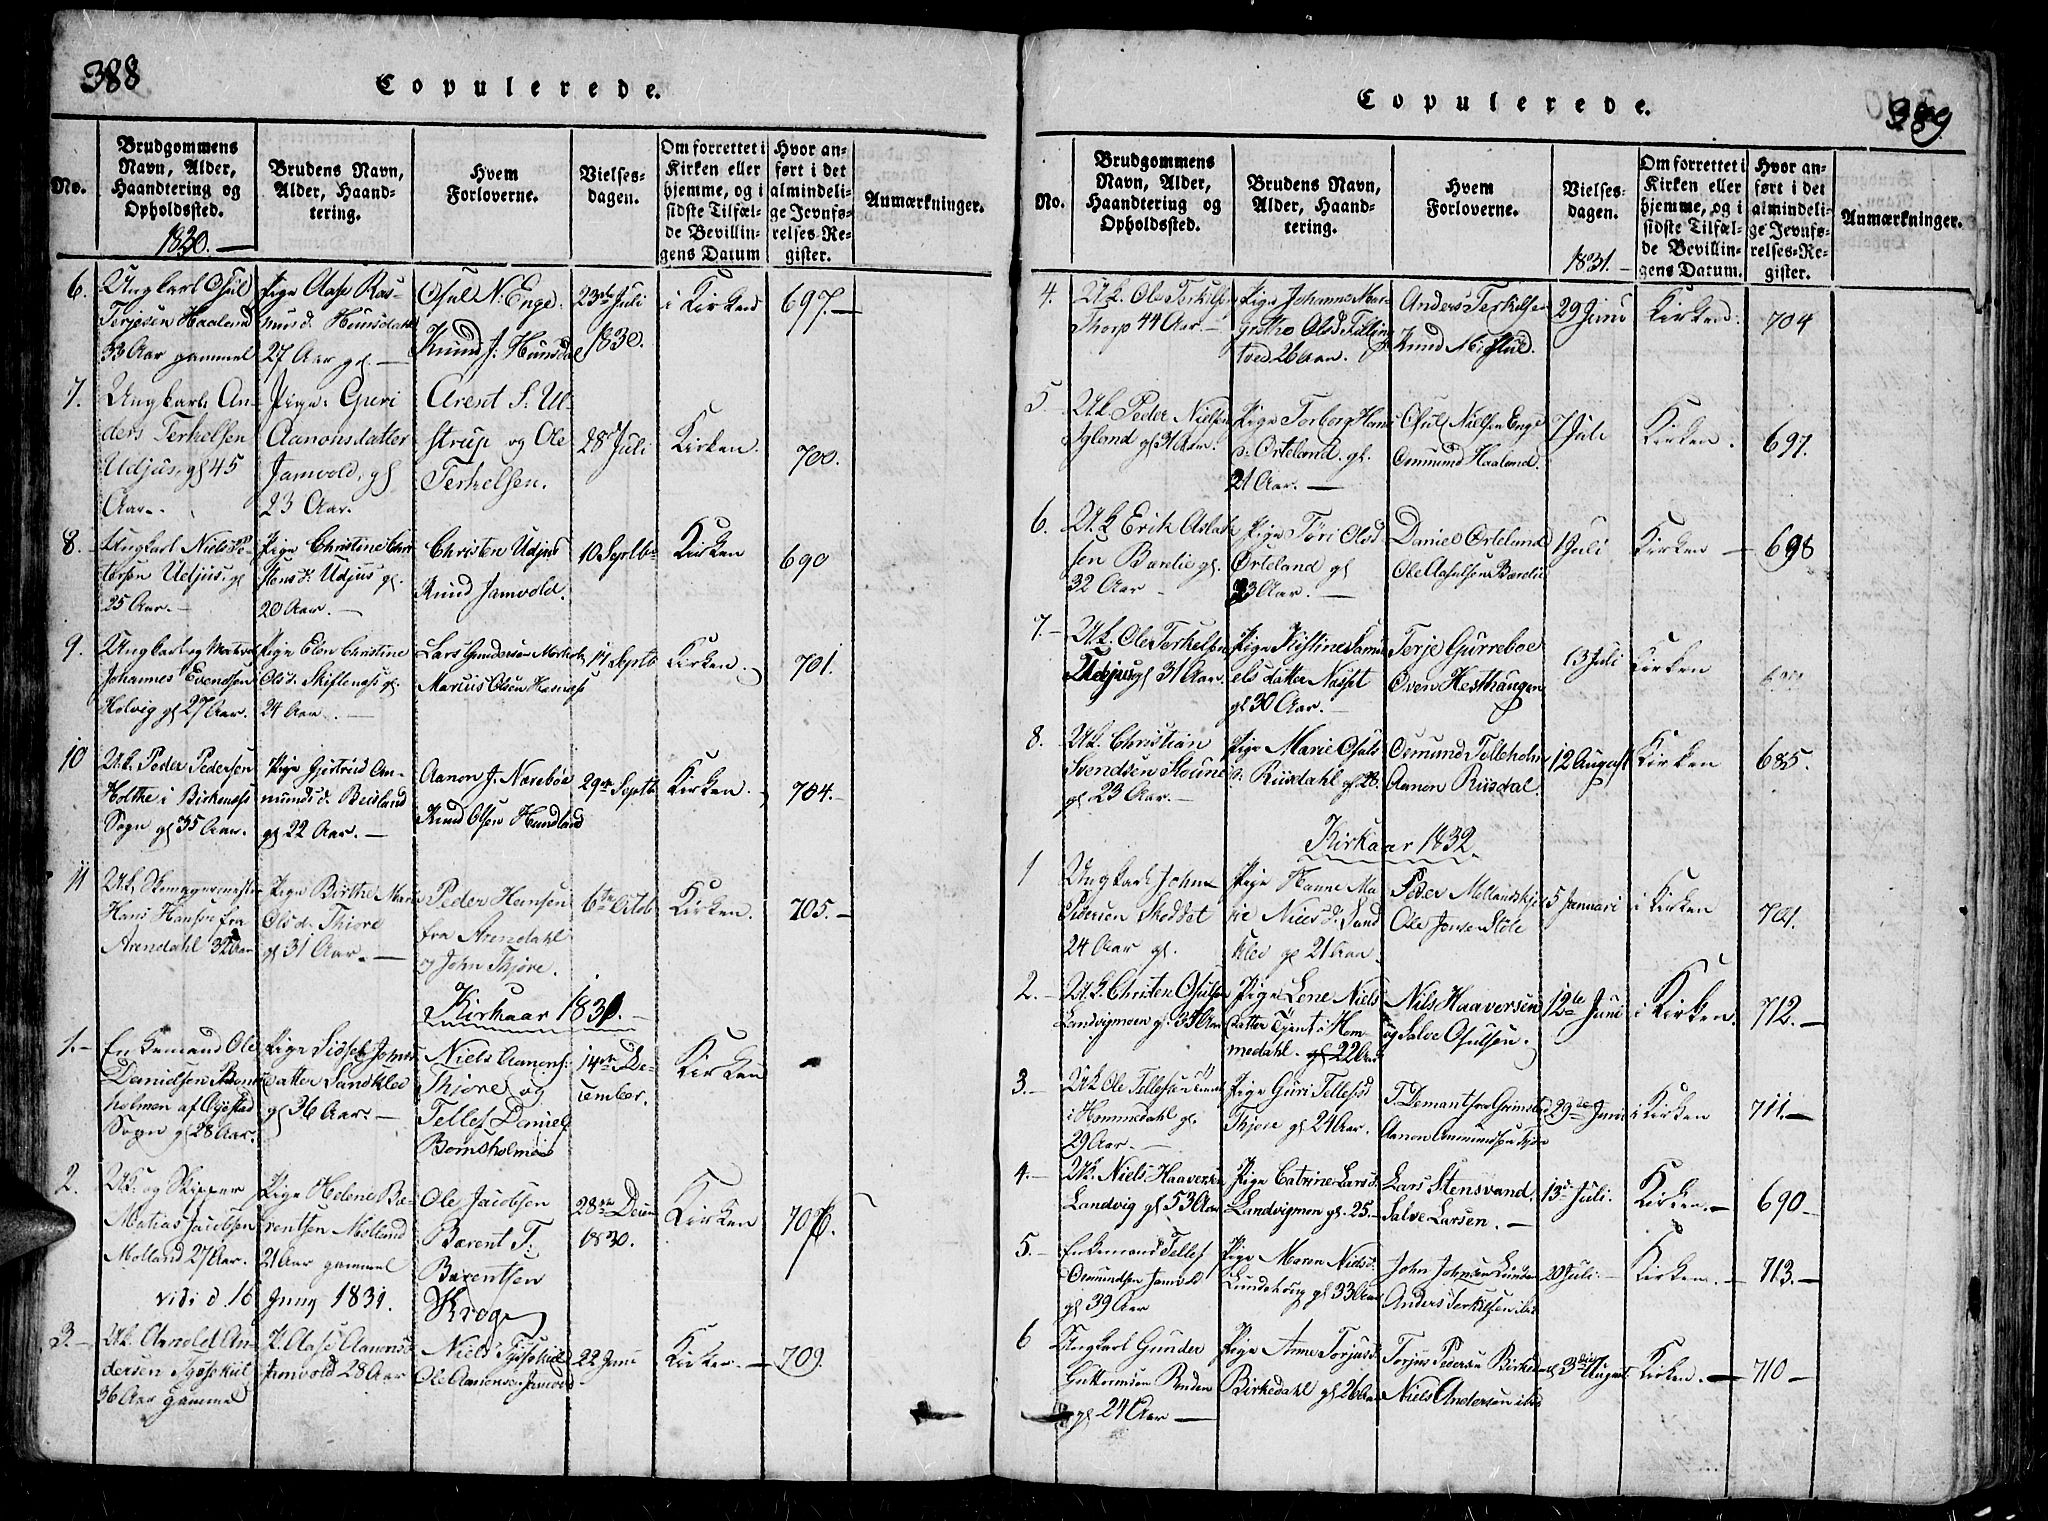 388
Copulerede.
No.
Brudgommens
Navn, Alder,
Haandtering og
Opholdssted.
1830.
Brudens Navn,
Alder, Haand-
tering.
Hvem
Forloverne.
Vielses-
dagen.
Om forrettet i
Kirken eller
hjemme, og i
sidste Tilfæl-
de Bevillin-
gens Datum
Hvor an-
ført i det
almindeli-
ge Jevnfø-
relses-Re-
gister.
Anmærkninger.
6.
Ungkarl Osul
Terjesen Haaland
33 Aar gammel
Pige Aase Ras-
musd. Hunsdahl
27 Aar gl.
Osul N: Enge
Knud J: Hunsdal
23de Juli
1830.
i Kirken
697.
7.
Ungkarl An-
ders Terkelsen
Udjus, gl 45
Aar.
Pige: Guri
Aanonsdatter
Jamvold, gl
23 Aar.
Arent S: Ul-
strup og Ole
Terkelsen.
28 Juli
Kirken.
700.
8.
Ungkarl Niels Pe-
tersen Udjus, gl
25 Aar.
Pige Christine Chri-
stens d. Udjus gl.
20 Aar.
Christen Udjus
Knud Jamvold.
10 Septbr
Kirken
690
9.
Ungkarl og Matros
Johannes Evendsen
Holvig gl 27 Aar.
Pige Elen Christine
Olsd. Skiftenes gl.
24 Aar.
Lars Gundersøn
Marcus Olsen
14 Septb
Kirken.
701.
10
Uk. Peder Pedersen
Holthe i Birkenæs
Sogn gl 35 Aar.
Pige Gjertrud Am-
munds d. Beisland
gl 22 Aar.
Aanon J. Næreboe
Knud Olsen Hundland
29de Septb
Kirken.
704.
11
Uk. Skomagermester
Hans Hansen fra
Arendahl 32 Aar
Pige Birthe Marie
Olsd. Thiore
gl 31 Aar.
Peder Hansen
fra Arendahl
og John Thjøre.
6te Octob
Kirken.
705.
Kirkaar 1831.
1.
Enkemand Ole
Danielsen
holmen af Øiestad
Sogn gl 28 Aar.
Pige Sidsel Johns
datter Sandkleo
gl 36 Aar.
Niels Aanons:
Thjøre og
Tellef Daniels
Bomsholmen
14de De-
cember.
Kirken
2.
Uk. og Skipper
Matias Jacobsen
Molland 27 Aar.
Pige Helene Ba-
rentsen Molland
21 Aar gammel
Ole Jacobsen
Barent T:
Barentsen
28de Decem
1830.
Kirken
706.
vidi d 16 Juny 1831. Krog
3.
Uk. Arnold An-
dersen
36 Aar gammel
P. Aase Aanons d
Jamvold 28 Aar
Niels
Ole Aanonsen Jamvold
22 Juni
Kirken.
709.
389
Copulerede.
No.
Brudgommens
Navn, Alder,
Haandtering og
Opholdssted.
Brudens Navn,
Alder, Haand-
tering.
Hvem
Forloverne.
Vielses-
dagen.
1831.
Om forrettet i
Kirken eller
hjemme, og i
sidste Tilfæl-
de Bevillin-
gens Datum.
Hvor an-
ført i det
almindeli-
ge Jevnfø-
relses-Re-
gister.
Anmærkninger.
4.
Uk. Ole Terkilsen
Thorp 44 Aar.
Pige Johanne Mar-
gretha Olsd.
tved 26 Aar.
Anders Terkilsen
Knud
29 Juni
Kirken.
704
5
Uk. Peder Nielsen
Igland gl 31 Aar.
Pige Torborg Hans
d: Ørteland. gl.
21 Aar.
Osul Nielsen Enge
Osmund Haaland.
7 Juli
Kirken.
697.
6.
Uk Erik Aslak
sen Bærlie gl.
32 Aar
Pige Tøri Olsd
Ørteland gl
23 Aar.
Daniel Ørteland
Ole Aasulsen Bærelie
1 Juli
Kirken
698
7.
Uk. Ole Terkelsen
Udjus gl 31 Aar.
Pige Kistine Samu
els datter Nasset
gl 30 Aar.
Terje Gurreboe
Oven Hesthaugen
13 Juli
Kirken
8.
Uk. Christian
Svendsen
gl 23 Aar.
Pige Marie Osuls
d. Riisdahl gl 28.
Osmund Telleholm
Aanon Riisdal.
12 August
Kirken
685.
Kirkaar 1832.
1
Ungkarl John
Pedersen
24 Aar gl.
Pige Hanne Ma-
rie Niels d. Sand
kleo gl 21 Aar
Peder
Ole Jensen Støle
5 Januari
i Kirken
701.
2.
Uk. Christen Osulsen
Landvigmoen gl. 35 Aar
Pige Lene Niels
datter i Hom-
medahl. gl 22 Aar
Nils Haaversen
og Salve Osulsen.
12te Juni
i Kirken.
712.
3.
Uk Ole Tellefsen
i Hommedahl gl.
29 Aar.
Pige Guri Tellefsd
Thjøre gl 24 Aar.
T. Demant fra Grimstad
Aanon Ammundsen
29de Juni
i Kirken
711
4.
Uk. Niels Haaversen
Landvig gl 53 Aar
Pige Catrine Larsd.
Landvigmoen gl. 25.
Lars Stensvand.
Salve Larsen.
13de Juli.
Kirken.
690
5.
Enkemand Tellef
Osmundsen Jamvold
gl 39 Aar
Pige Maren Nielsd.
gl 33 Aar
John Johnsen
Anders Terkilsen ibid
20 Juli.
Kirken.
713.
6
Ungkarl Gunder
Guttormsen
gl 24 Aar
Pige Anne Torjusd.
Birkedahl gl 26 Aar
Torjus Pedersen Birkedal
Niels Andersen ibid
3die August
Kirken.
710